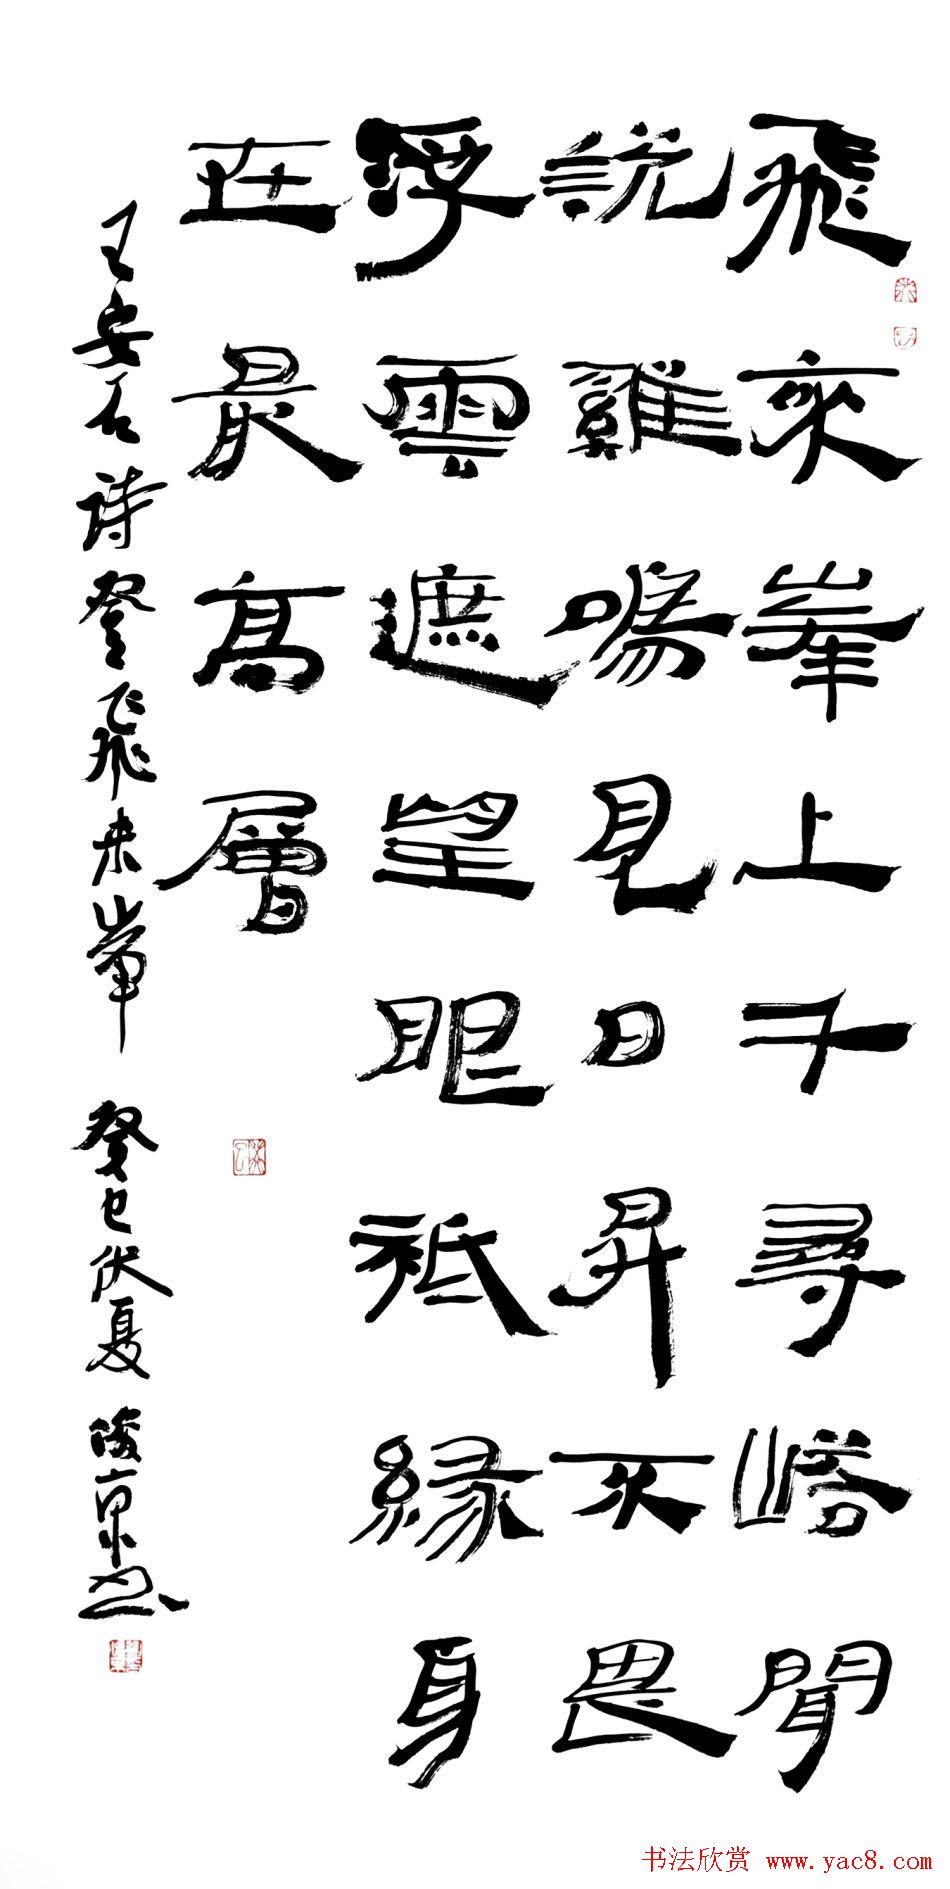 飛來峯上千尋塔聞
說雞鳴見日昇不畏
浮雲遮望眼祗緣身
在最高層
王安石诗登飛来峯 癸巳伏夏 書
书法欣赏 www.yac8.com